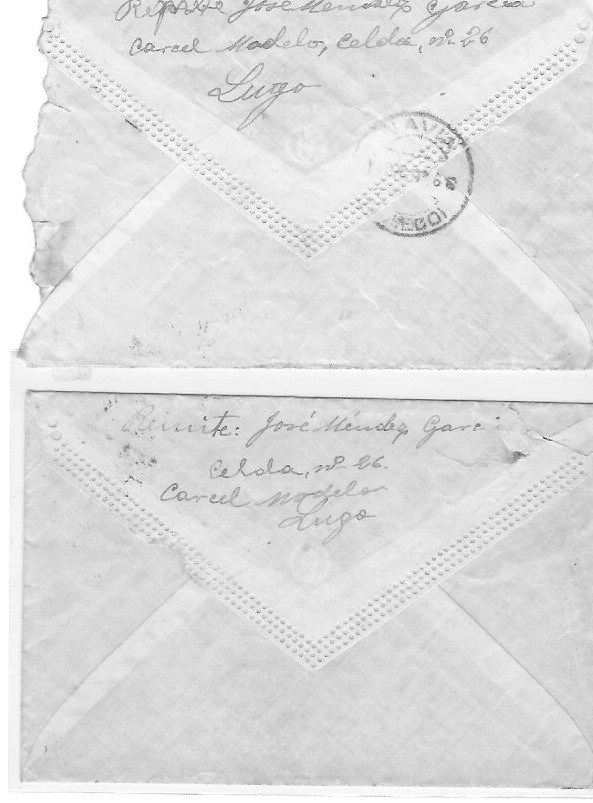 José Méndez García
Carcel Modelo, Celda, nº 26
Lugo
Remite: José Méndez
Celda, nº 26.
Carcel Modelo
Lugo